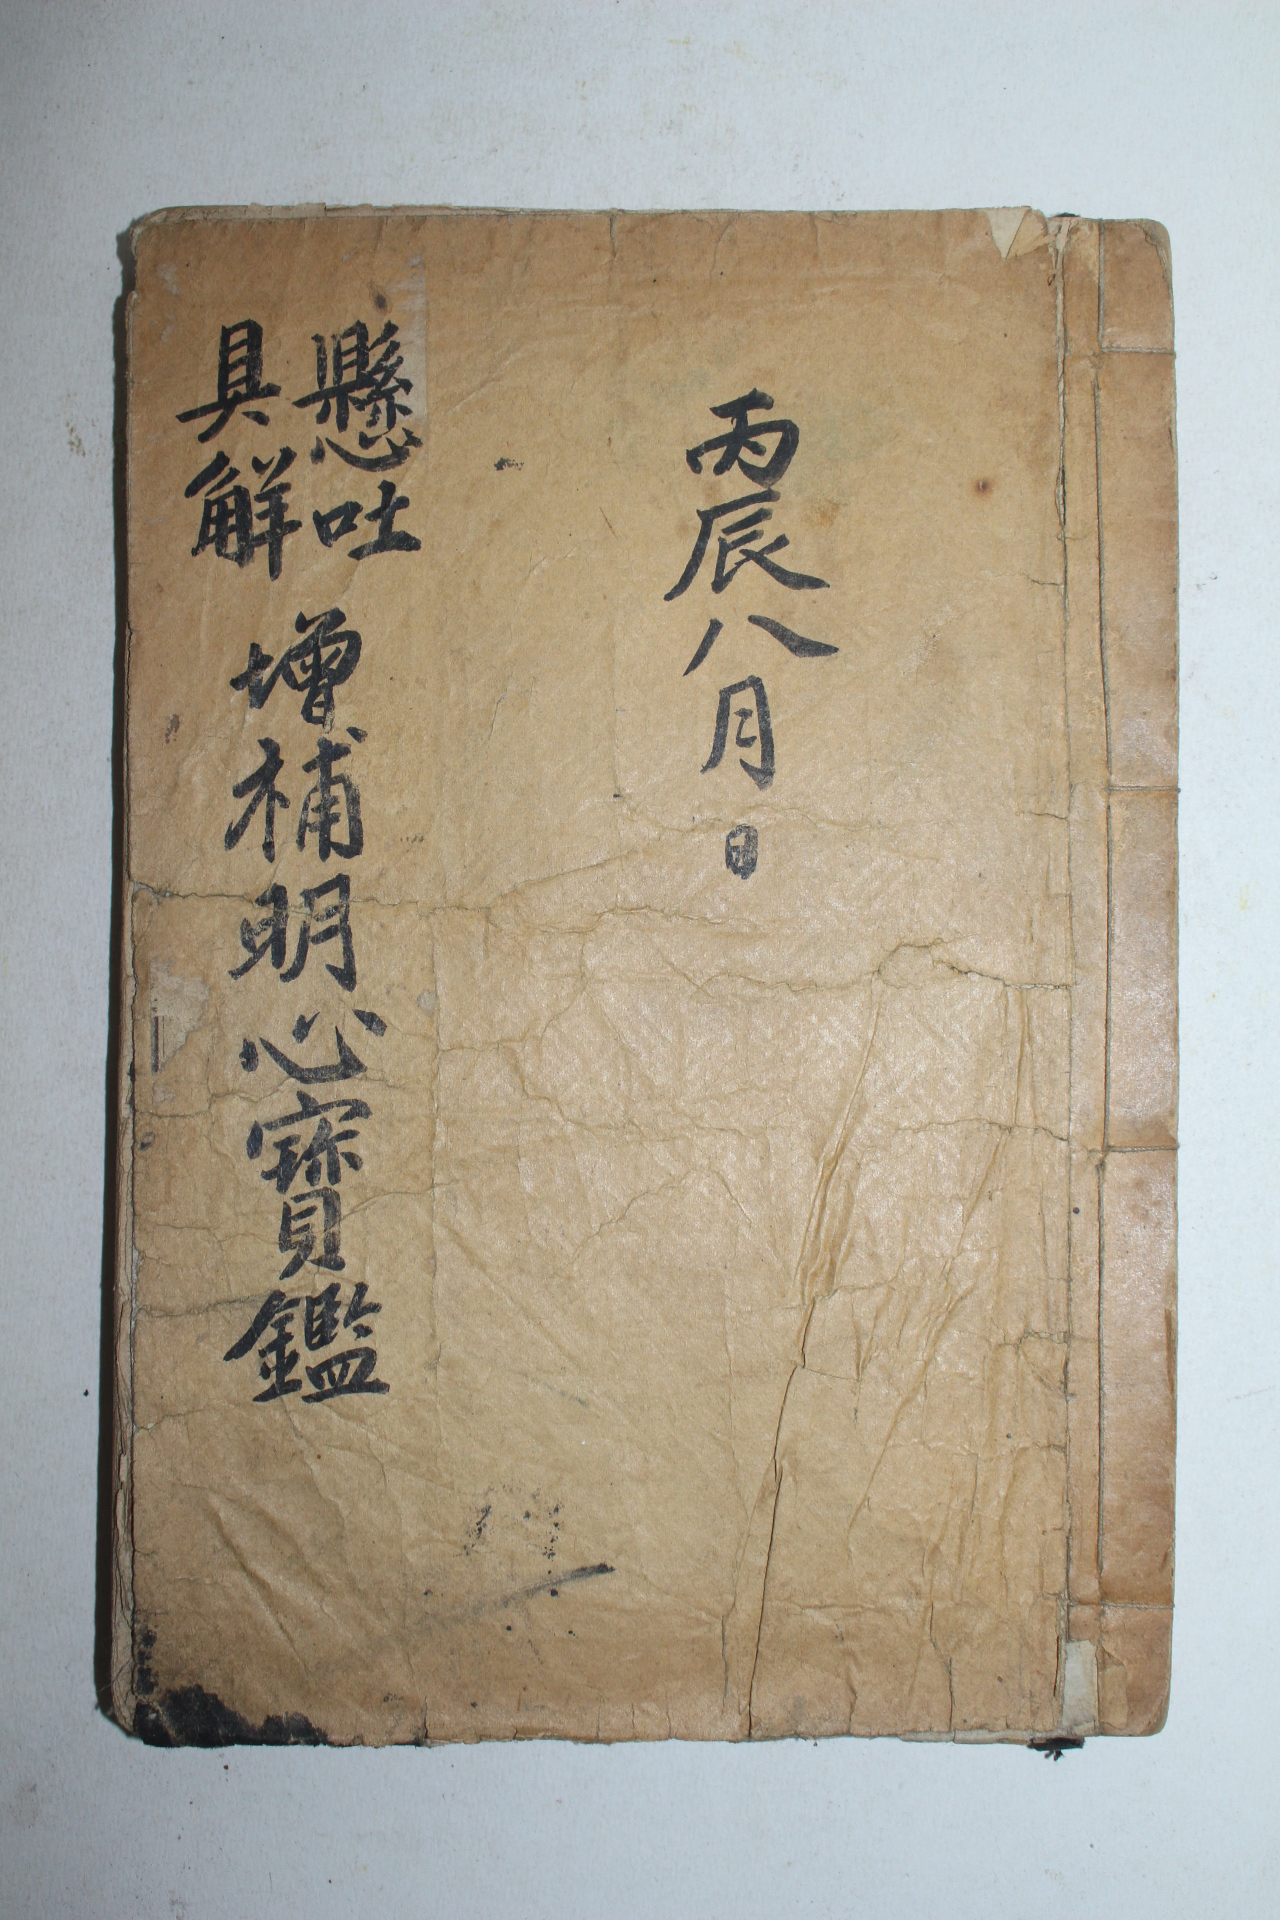 丙辰八月日
懸吐
具解
增補明心寶鑑